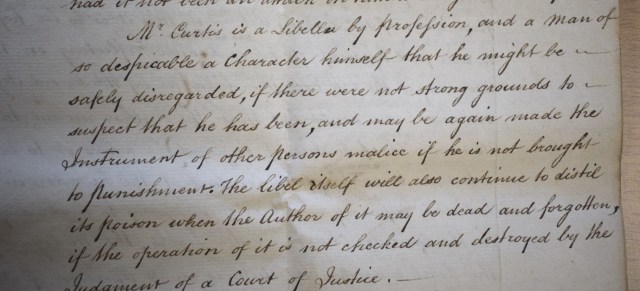 had it not been an attack in
Mr. Curtis is a Libeller by profession, and a man of
so despicable a Character himself that he might be
safely disregarded, if there were not strong grounds to
suspect that he has been, and may be again made the
Instrument of other persons malice if he is not brought
to punishment. The libel itself will also continue to distil
its poison when the Author of it may be dead and forgotten,
if the operation of it is not checked and destroyed by the
Judgment of a Court of Justice. —